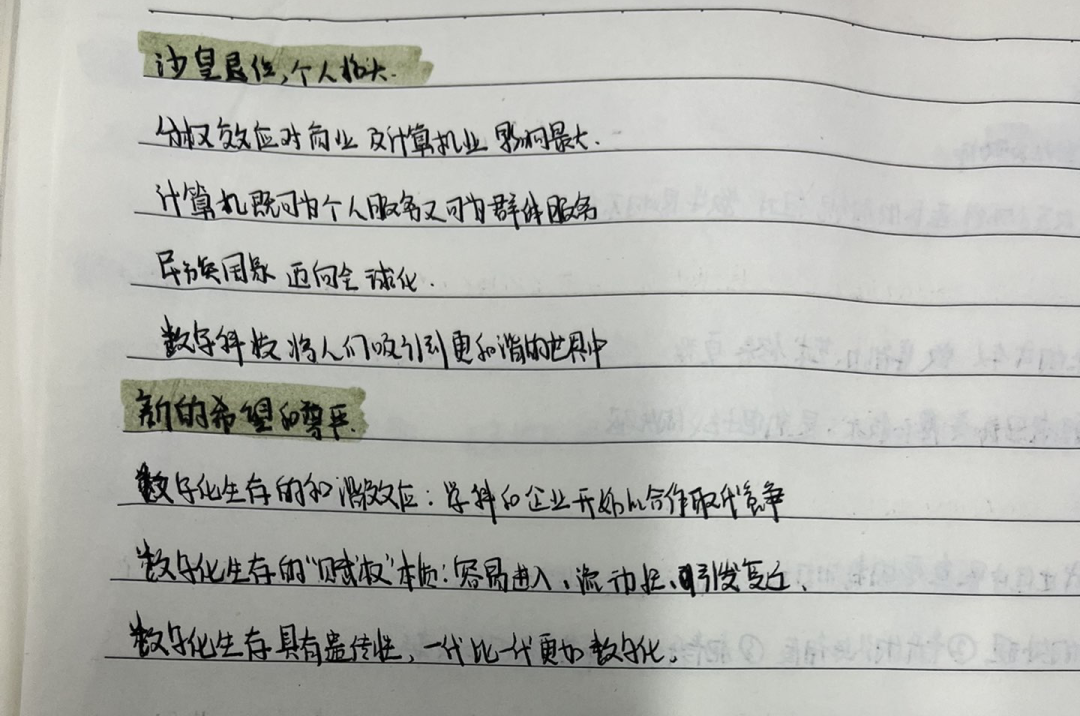 沙皇退位,个人抬大.
分权效应对商业及计算机业影响最大.
计算机既可为个人服务又可为群体服务
民族国家 迈向全球化.
数字科技将人们吸引到更和谐的世界中
新的希望和尊严.
数字化生存的和谐效应:学科和企业开始以合作取代竞争
数字化生存的"赋权"本质:容易进入、流动性、引发变迁.
数字化生存具有遗传性,一代比一代更加数字化.